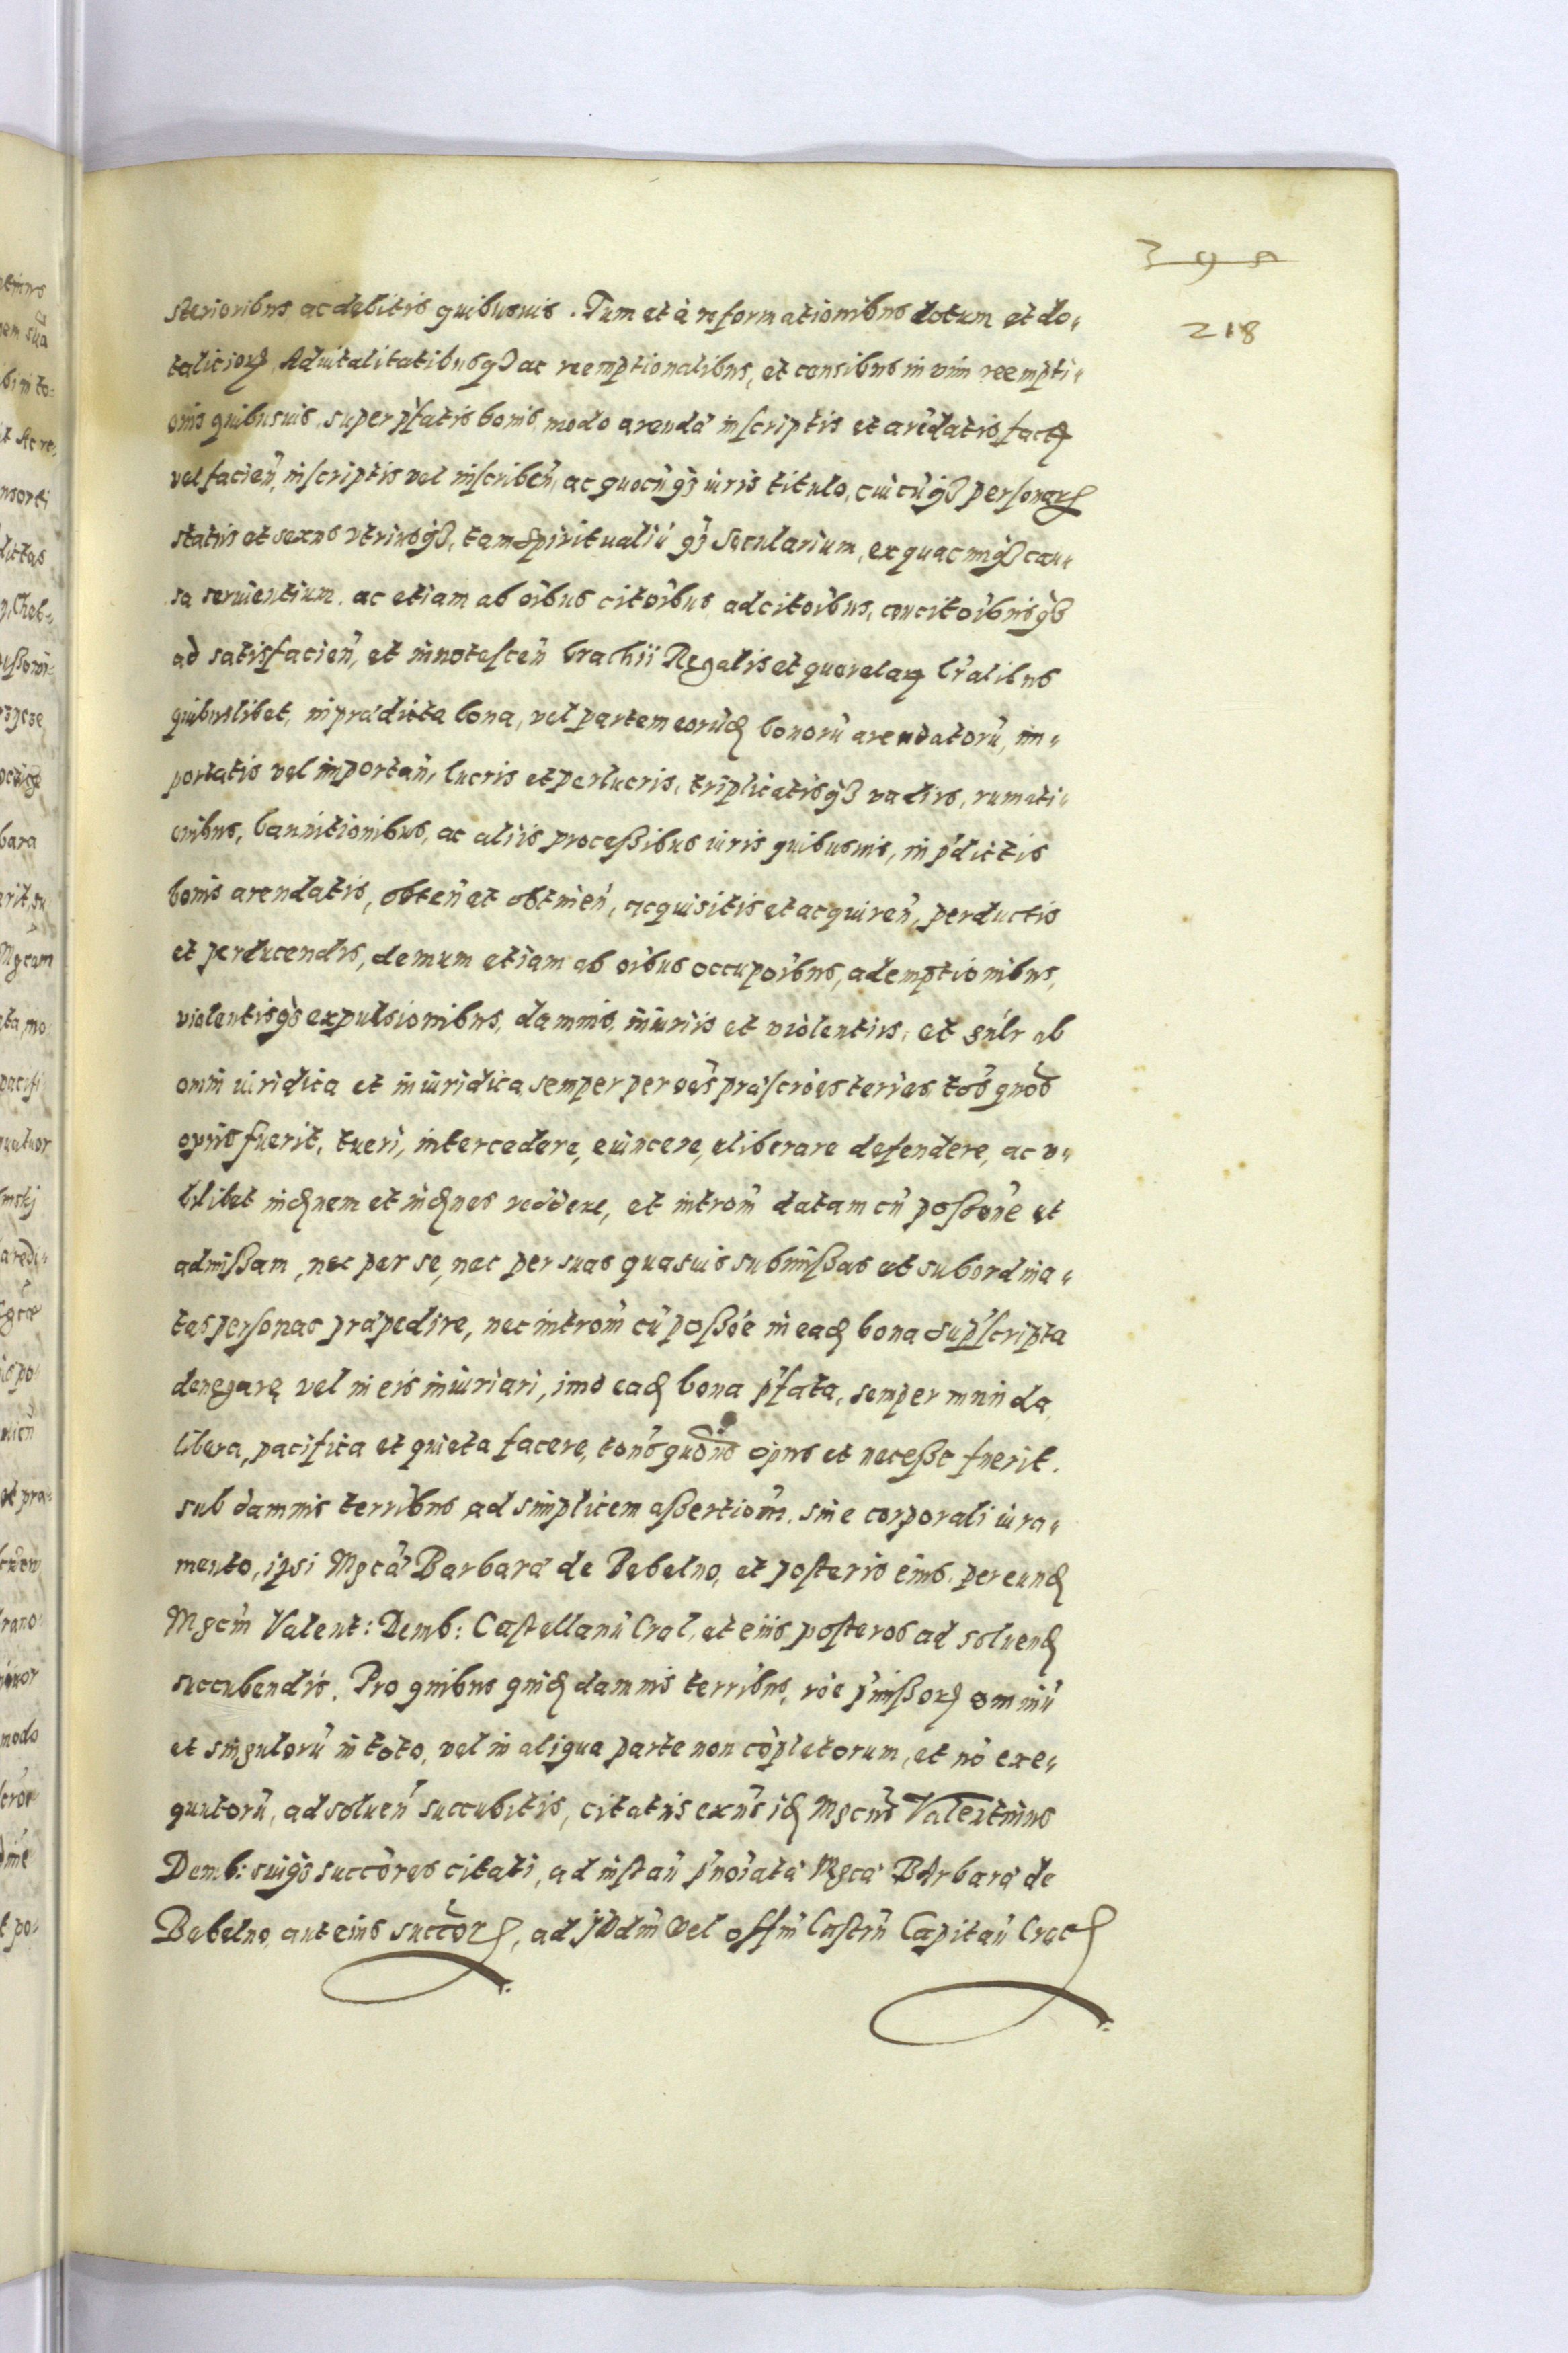 398
218
sterioribus ac debitis quibusuis. Tum et à reformationibus dotum et do-
taliciorum, Aduitalitatibusq3 ac reemptionalibus, et censibus in vim reempti-
onis quibusuis, super p̃fatis bonis, modo arendæ inscriptis et arẽdatis fact
vel facień, inscriptis vel inscribeń, ac quocũq3 iuris titulo, cuiuscũq3 personar
status et sexus vtriusq3, tam Spiritualiũ q3 Secularium, ex quacunq3 cau-
sa seruientium. ac etiam ab oĩbus citoĩbus, adcitoĩbus, concitoĩbusq3
ad satisfacień, et innotesceń brachii Regalis et querelar lr̃alibus
quibuslibet, in prædicta bona, vel partem eorũd bonorũ arendatorũ, im-
portatis vel importań, lucris et perlucris, triplicatisq3 vadiis, rumati-
onibus, bannitionibus, ac aliis processibus iuris quibusuis, in p̃dictis
bonis arendatis, obteń et obtineń, acquisitis et acquireń, perductis
et perducendis, demum etiam ab oĩbus occupoĩbus, ademptionibus,
violentisq3 expulsionibus, damnis, iniuriis et violentiis, et gńlr ab
omni iuridica et iniuridica, semper per oẽs præscrões terrẽas, tõs quõs
opus fuerit, tueri, intercedere, euincere, eliberare defendere, ac v-
bilibet indnem et indnes reddere, et introm̃ datam cũ poßone et
admißam, nec per se, nec per suas quasuis submißas et subordina-
tas personas præpedire, nec introm̃ cũ poßõe in ead bona sup̃scripta
denegare vel in eis iniuriari, imo ead bona p̃fata, semper munda
libera, pacifica et quieta facere, tonś quonś opus et neceße fuerit.
sub damnis terrĩbus ad simplicem aßertiom̃. sine corporali iura-
mento, ipsi Mgcæ Barbaræ de Bebelno, et posteris eius, per eund
Mgcm̃ Valent: Demb: Castellanũ Cral, et eius posteros ad soluend
succubendis. Pro quibus quid damnis terrĩbus, rõe p̃mißor omniũ
et singulorũ in toto, vel in aliqua parte non cõpletorum, et nõ exe-
quutorũ, ad solueń succubitis, citatus exnś id Mgcus Valentinus
Demb: suiq3 succõres citati, ad instań p̃noĩatæ Mgcæ Barbaræ de
Bebelno, aut eius succor, ad Judm̃ vel offm̃ Castrń Capitań Crac